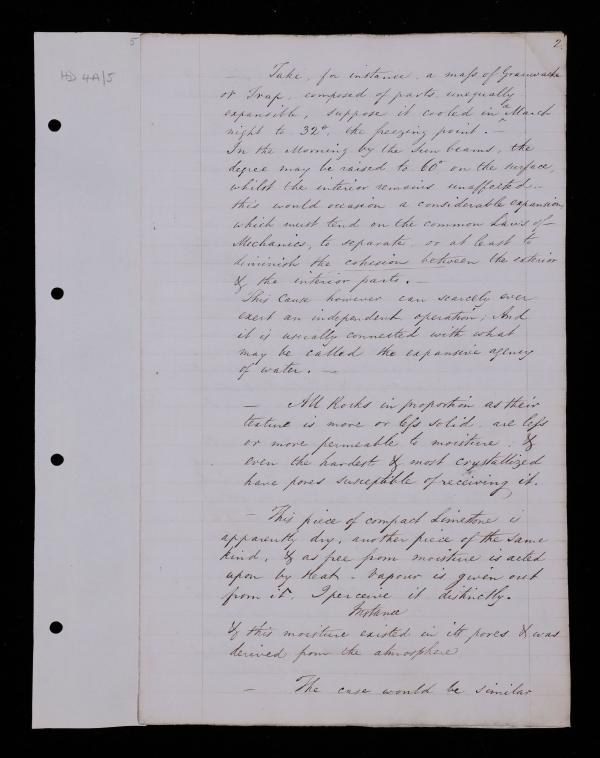 5
2.
HD 4A/5
— Take, for instance, a mass of Grauwacke
or Trap, composed of parts unequally
expansible, suppose it cooled in a March
night to 32°, the freezing point. —
In the Morning by the Sun beams, the
degree may be raised to 60° on the surface,
whilst the interior remains unaffected —
this would occasion a considerable expansion,
which must tend on the common Laws of
Mechanics, to separate, or at least to
diminish the cohesion between the exterior
& the interior parts. —
This Cause however can scarcely ever
exert an independent operation; And
it is usually connected with what
may be called the expansive agency
of water. —
— All Rocks in proportion as their
texture is more or less solid, are less
or more permeable to moisture, &
even the hardest & most crystallized
have pores susceptible of receiving it.
— This piece of compact Limestone is
apparently dry, another piece of the same
kind, & as free from moisture is acted
upon by Heat. Vapour is given out
from it, I perceive it distinctly.
Instance
& this moisture existed in its pores & was
derived from the atmosphere
— The case would be similar